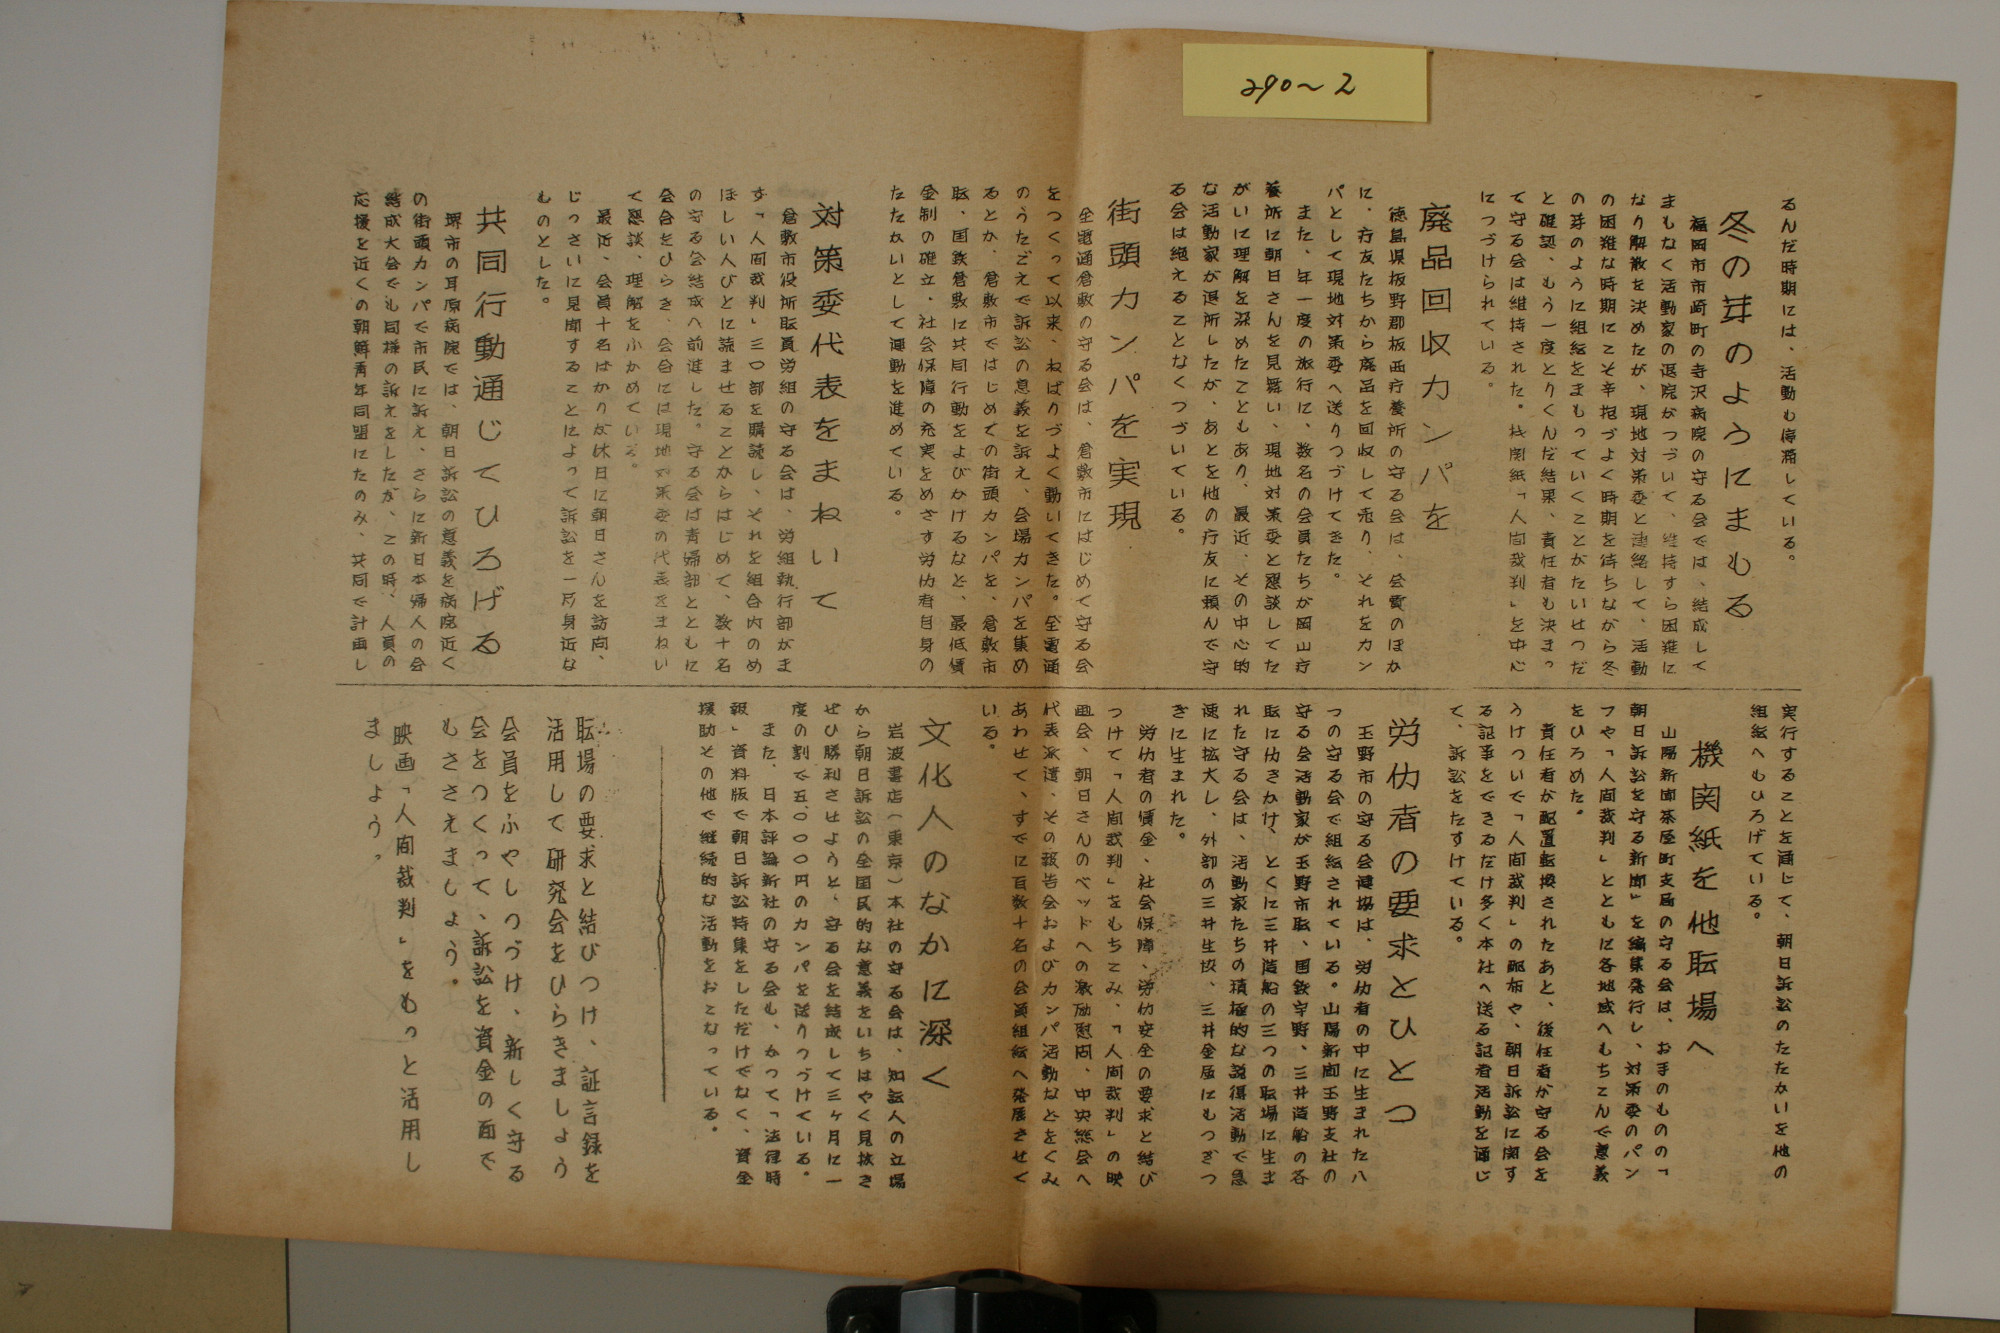 290〜2
るんだ時期には、活動も停滞している。
冬の芽のようにまもる
福岡市市崎町の寺沢病院の守る会では、結成して
まもなく活動家の退院がつづいて、維持すら困難に
なり解散を決めたが、現地対策委と連絡して、活動
の困難な時期にこそ辛抱づよく時期を待ちながら冬
の芽のように組織をまもっていくことがたいせつだ
と確認、もう一度とりくんだ結果、責任者も決まっ
て守る会は維持された。機関紙「人間裁判」を中心
につづけられている。
廃品回収カンパを
徳島県板野郡板西療養所の守る会は、会費のほか
に、療友たちから廃品を回収して売り、それをカン
パとして現地対策委へ送りつづけてきた。
また、年一度の旅行に、数名の会員たちが岡山療
養所に朝日さんを見舞い、現地対策委と懇談してた
がいに理解を深めたこともあり、最近、その中心的
な活動家が退所したが、あとを他の療友に頼んで守
る会は絶えることなくつづいている。
街頭カンパを実現
全電通倉敷の守る会は、倉敷市にはじめて守る会
をつくって以来、ねばりづよく動いてきた。全電通
のうたごえで訴訟の意義を訴え、会場カンパを集め
るとか、倉敷市ではじめての街頭カンパを、倉敷市
職、国鉄倉敷に共同行動をよびかけるなど、最低賃
金制の確立・社会保障の充実をめざす労働者自身の
たたかいとして運動を進めている。
対策委代表をまねいて
倉敷市役所職員労組の守る会は、労組執行部がま
ず「人間裁判」三〇部を購読し、それを組合内のめ
ほしい人びとに読ませることからはじめて、数十名
の守る会結成へ前進した。守る会は青婦部とともに
会合をひらき、会合には現地対策委の代表をまねい
て懇談、理解をふかめている。
最近、会員十名ばかりが休日に朝日さんを訪問、
じっさいに見聞することによって訴訟を一層身近な
ものとした。
共同行動通じてひろげる
堺市の耳原病院では、朝日訴訟の意義を病院近く
の街頭カンパで市民に訴え、さらに新日本婦人の会
結成大会でも同様の訴えをしたが、この時、人員の
応援を近くの朝鮮青年同盟にたのみ、共同で計画し
実行することを通じて、朝日訴訟のたたかいを他の
組織へもひろげている。
機関紙を他職場へ
山陽新聞茶屋町支局の守る会は、お手のものの「
朝日訴訟を守る新聞」を編集発行し、対策委のパン
フや「人間裁判」とともに各地域へもちこんで意義
をひろめた。
責任者が配置転換されたあと、後任者が守る会を
うけついで「人間裁判」の配布や、朝日訴訟に関す
る記事をできるだけ多く本社へ送る記者活動を通じ
て、訴訟をたすけている。
労働者の要求とひとつ
玉野市の守る会連協は、労働者の中に生まれた八
つの守る会で組織されている。山陽新聞玉野支社の
守る会活動家が玉野市職、国鉄宇野、三井造船の各
職に働きかけ、とくに三井造船の三つの職場に生ま
れた守る会は、活動家たちの積極的な説得活動で急
速に拡大し、外部の三井生協、三井金属にもつぎつ
ぎに生まれた。
労働者の賃金、社会保障、労働安全の要求と結び
つけて「人間裁判」をもちこみ、「人間裁判」の映
画会、朝日さんのベッドへの激励慰問、中央総会へ
代表派遣、その報告会およびカンパ活動などをくみ
あわせて、すでに百数十名の会員組織へ発展させて
いる。
文化人のなかに深く
岩波書店（東京）本社の守る会は、知識人の立場
から朝日訴訟の全国民的な意義をいちはやく見抜き
ぜひ勝利させようと、守る会を結成して三ヶ月に一
度の割で五、〇〇〇円のカンパを送りつづけている。
また、日本評論新社の守る会も、かつて「法律時
報」資料版で朝日訴訟特集をしただけでなく、資金
援助その他で継続的な活動をおこなっている。
職場の要求と結びつけ、証言録を
活用して研究会をひらきましょう
会員をふやしつづけ、新しく守る
会をつくって、訴訟を資金の面で
もささえましょう。
映画「人間裁判」をもっと活用し
ましょう。